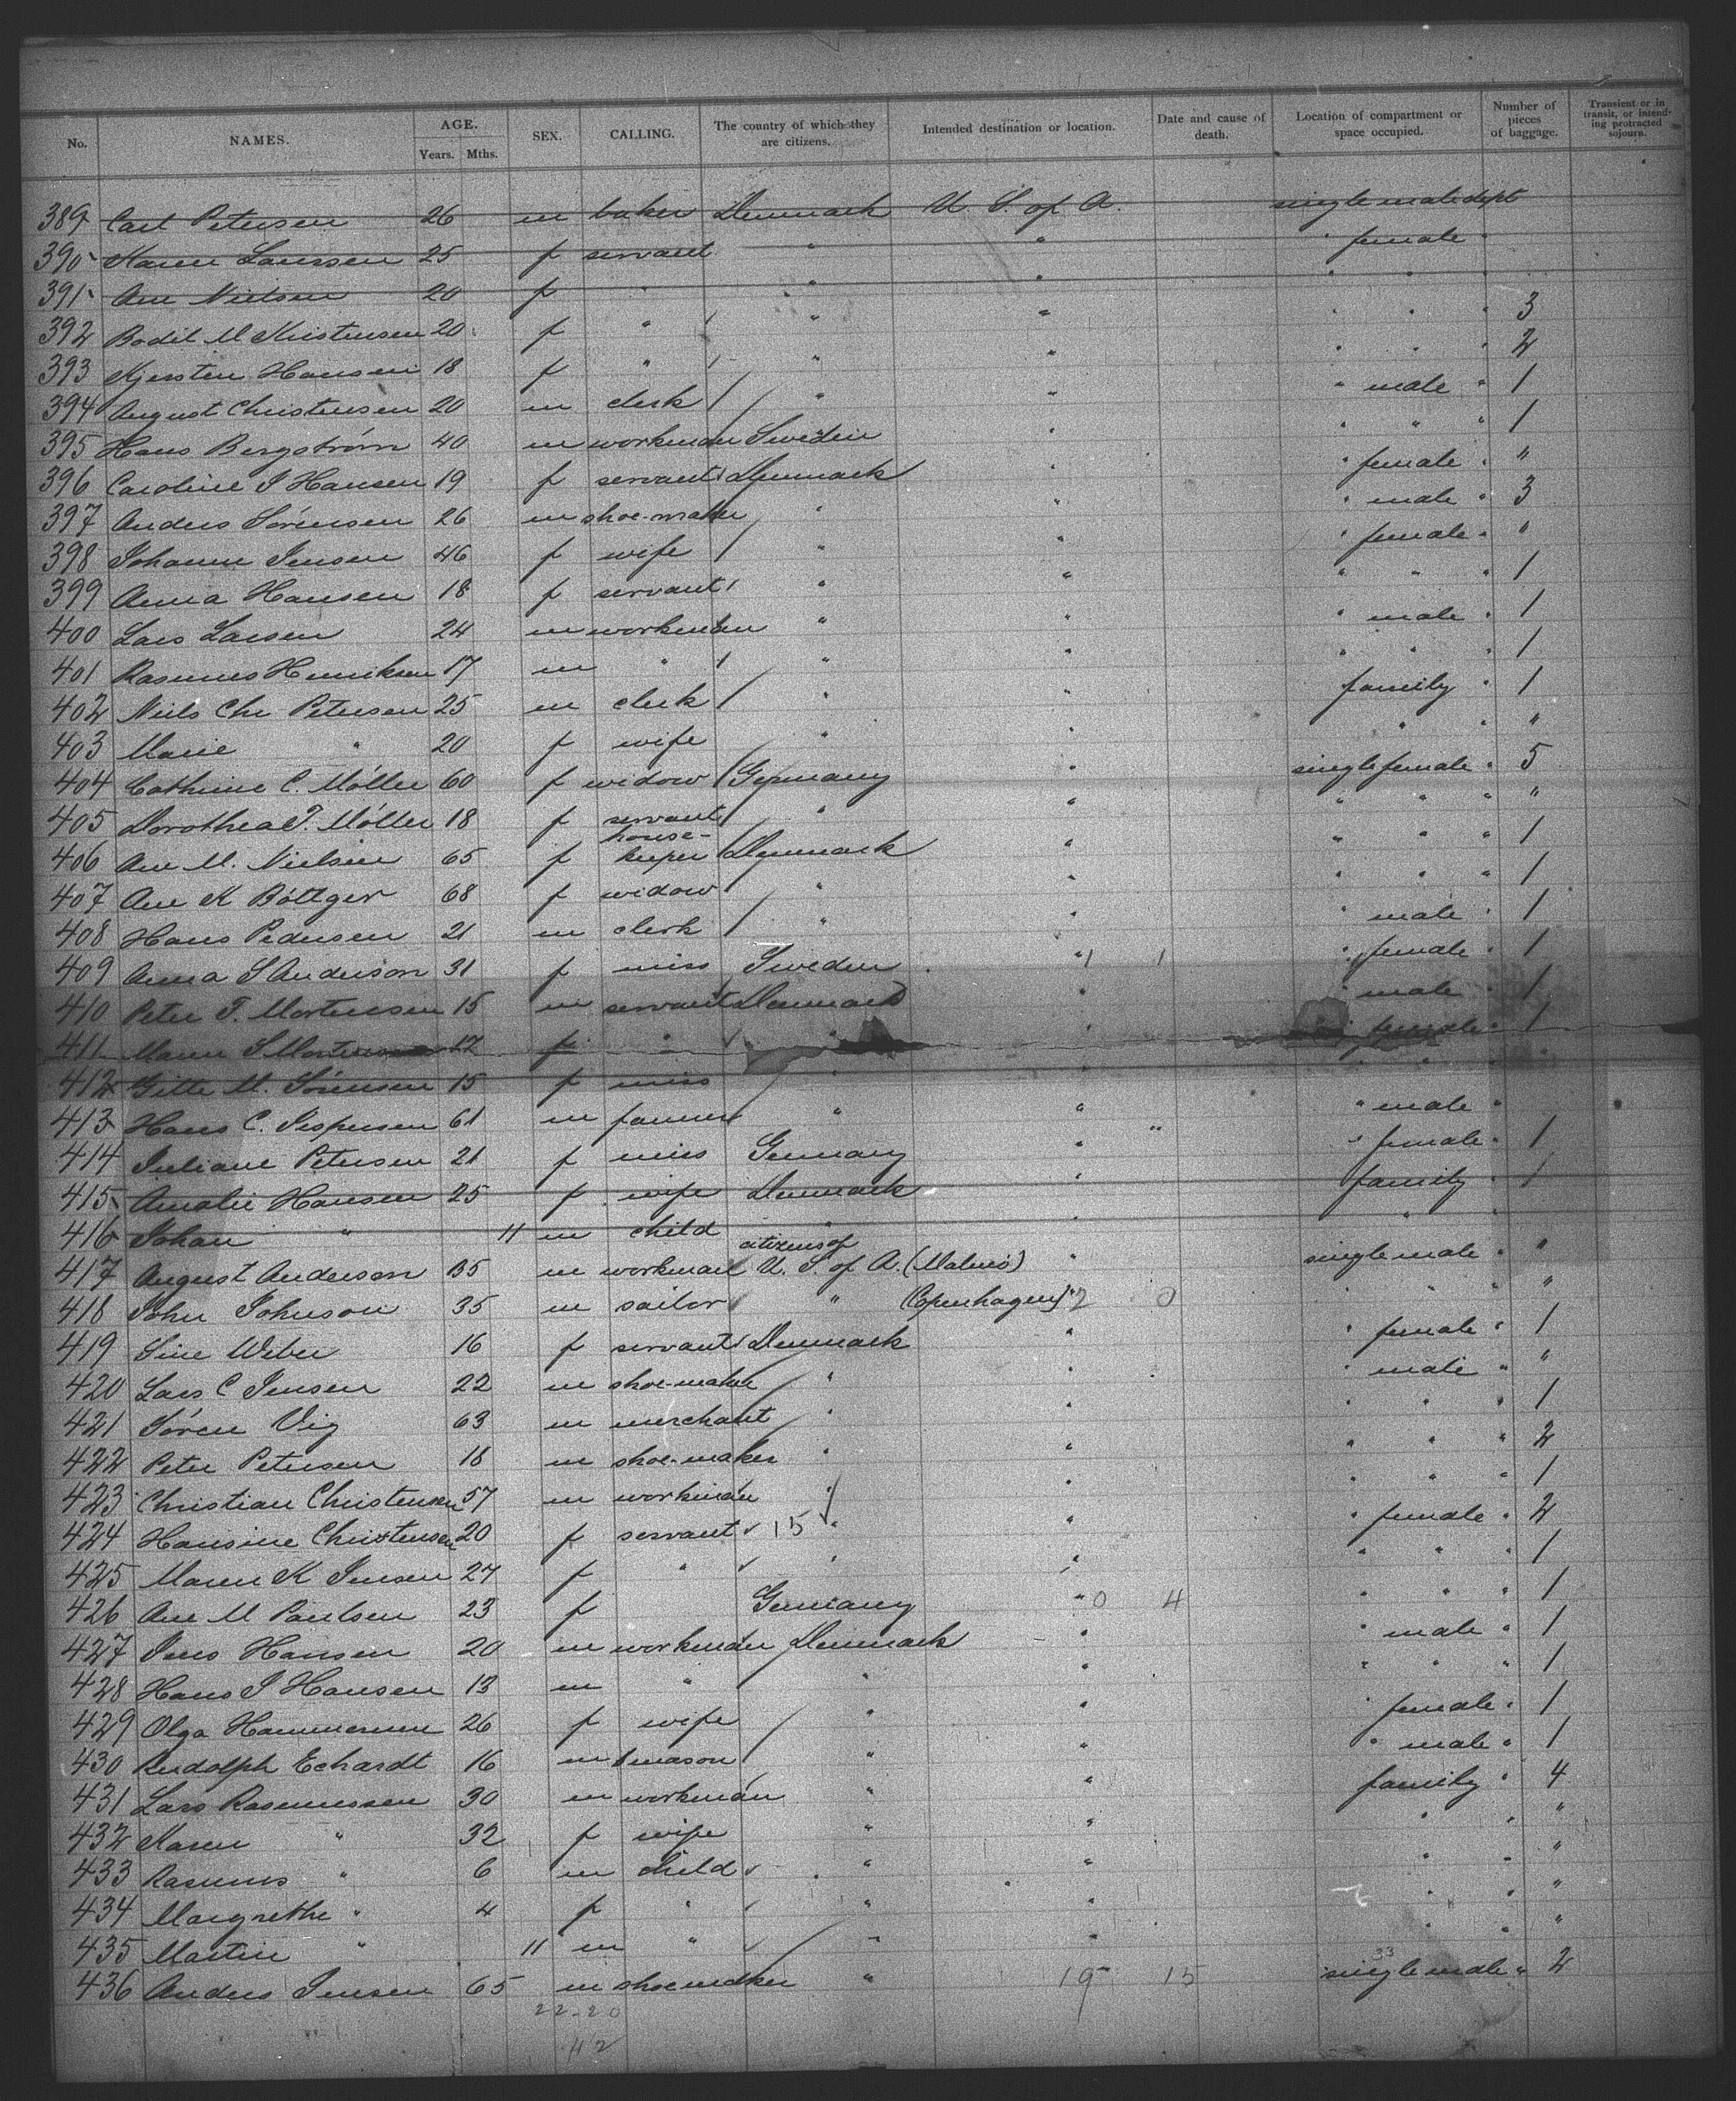 No. NAMES. AGE. Years. Mths. SEX. CALLING. The country of which they are citizens. Intended destination or location. Date and cause of death. Location of compartment or space occupied. Number of pieces of baggage. Transient or in transit, or intending protracted sojourn.
389 Carl Petersen 26 m baker Denmark U. S. of A. single male dept
390 Karen Laurssen 25 f servant " " " female "
391 Ane Nielsen 20 f " " " " " "
392 Bodil M Kristensen 20 f " " " " " " 3
393 Kjersten Hansen 18 f " " " " " " 2
394 August Christensen 20 m clerk " " " male " 1
395 Hans Bergström 40 m workman Sweden " " " " 1
396 Caroline J Hansen 19 f servant Denmark " " female " "
397 Anders Sörensen 26 m shoe-maker " " " male " 3
398 Johanne Jensen 46 f wife " " " female " "
399 Anna Hansen 18 f servant " " " " " 1
400 Lars Larsen 24 m workman " " " male " 1
401 Rasmus Henriksen 17 m " " " " " " 1
402 Niels Chr Petersen 25 m clerk " " family " 1
403 Marie " 20 f wife " " " " "
404 Cathrine C. Möller 60 f widow Germany " single female " 5
405 Dorothea T. Möller 18 f servant " " " " " "
406 Ane M. Nielsen 65 f house-keeper Denmark " " " " 1
407 Ane K Böttger 68 f widow " " " " " 1
408 Hans Pedersen 21 m clerk " " " male " 1
409 Anna S Anderson 31 f miss Sweden " 1 1 " female " 1
410 Peter T. Mortensen 15 m servant Denmark " " male " 1
411 Maren S Mortensen 17 f " " " " female " 1
412 Gitte M. Sörensen 15 f miss " " " " "
413 Hans C. Jespersen 61 m farmer " " " " male "
414 Juliane Petersen 21 f miss Germany " " female " 1
415 Amalie Hansen 25 f wife Denmark " family " 1
416 Johan " 11 m child " " " "
417 August Anderson 35 m workman citizens of U. S. of A. (Malmö) " single male " "
418 John Johnson 35 m sailor " (Copenhagen) " 2 0 " " " "
419 Sine Weber 16 f servant Denmark " " female " 1
420 Lars C Jensen 22 m shoe-maker " " " male " "
421 Sören Vig 63 m merchant " " " " " 1
422 Peter Petersen 18 m shoe-maker " " " " " 2
423 Christian Christensen 57 m workman " " " " " 1
424 Hansine Christensen 20 f servant 15 " " " female " 2
425 Maren K Jensen 27 f " " " " " " 1
426 Ane M Paulsen 23 f Germany " 0 4 " " " 1
427 Jens Hansen 20 m workman Denmark " " male " 1
428 Hans J Hansen 13 m " " " " " " 1
429 Olga Hammerum 26 f wife " " " female " 1
430 Rudolph Echardt 16 m mason " " " male " 1
431 Lars Rasmussen 30 m workman " " family " 4
432 Karen " 32 f wife " " " " "
433 Rasmus " 6 m child " " " " "
434 Margrethe " 4 f " " " " " "
435 Martin " 11 m " " " " " "
436 Anders Jensen 65 m shoemaker " 19 15 33 single male " 2
22-20
42